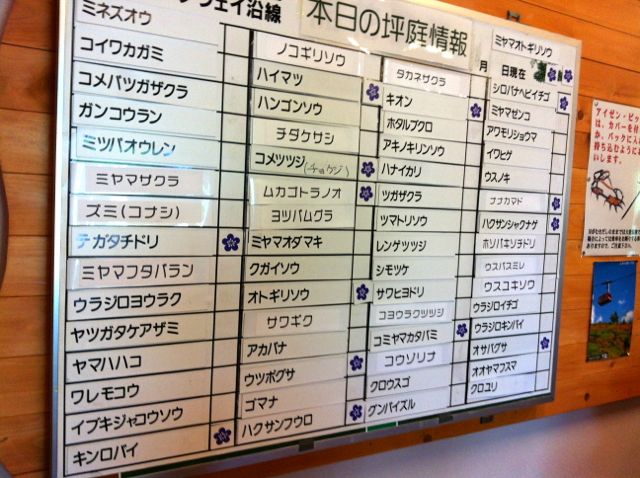 ウェイ沿線
本日の坪庭情報
月
日現在
ミネズオウ
コイワカガミ
コメバツガザクラ
ガンコウラン
ミツバオウレン
ミヤマザクラ
ズミ(コナシ)
テガタチドリ
ミヤマフタバラン
ウラジロヨウラク
ヤツガタケアザミ
ヤマハハコ
ワレモコウ
イブキジャコウソウ
キンロバイ
ノコギリソウ
ハイマツ
ハンゴンソウ
チダケサシ
コメツツジ(チョウジ)
ムカゴトラノオ
ヨツバムグラ
ミヤマオダマキ
クガイソウ
オトギリソウ
サワギク
アカバナ
ウツボグサ
ゴマナ
ハクサンフウロ
タカネザクラ
キオン
ホタルブクロ
アキノキリンソウ
ハナイカリ
ツガザクラ
ツマトリソウ
レンゲツツジ
シモツケ
サワヒヨドリ
コヨウラクツツジ
コミヤマカタバミ
コウゾリナ
クロウスゴ
グンバイズル
ミヤマオトギリソウ
シロバナヘビイチゴ
ミヤマゼンコ
アワモリショウマ
イワヒゲ
ウスノキ
ナナカマド
ハクサンシャクナゲ
ホソバキソチドリ
ウスバスミレ
ウスユキソウ
ウラジロイチゴ
ウラジロキンバイ
オサバグサ
オオヤマフスマ
クロユリ
アイゼン・ピッ
は、カバーを付
か、バックに入
持ち込むように
いします。